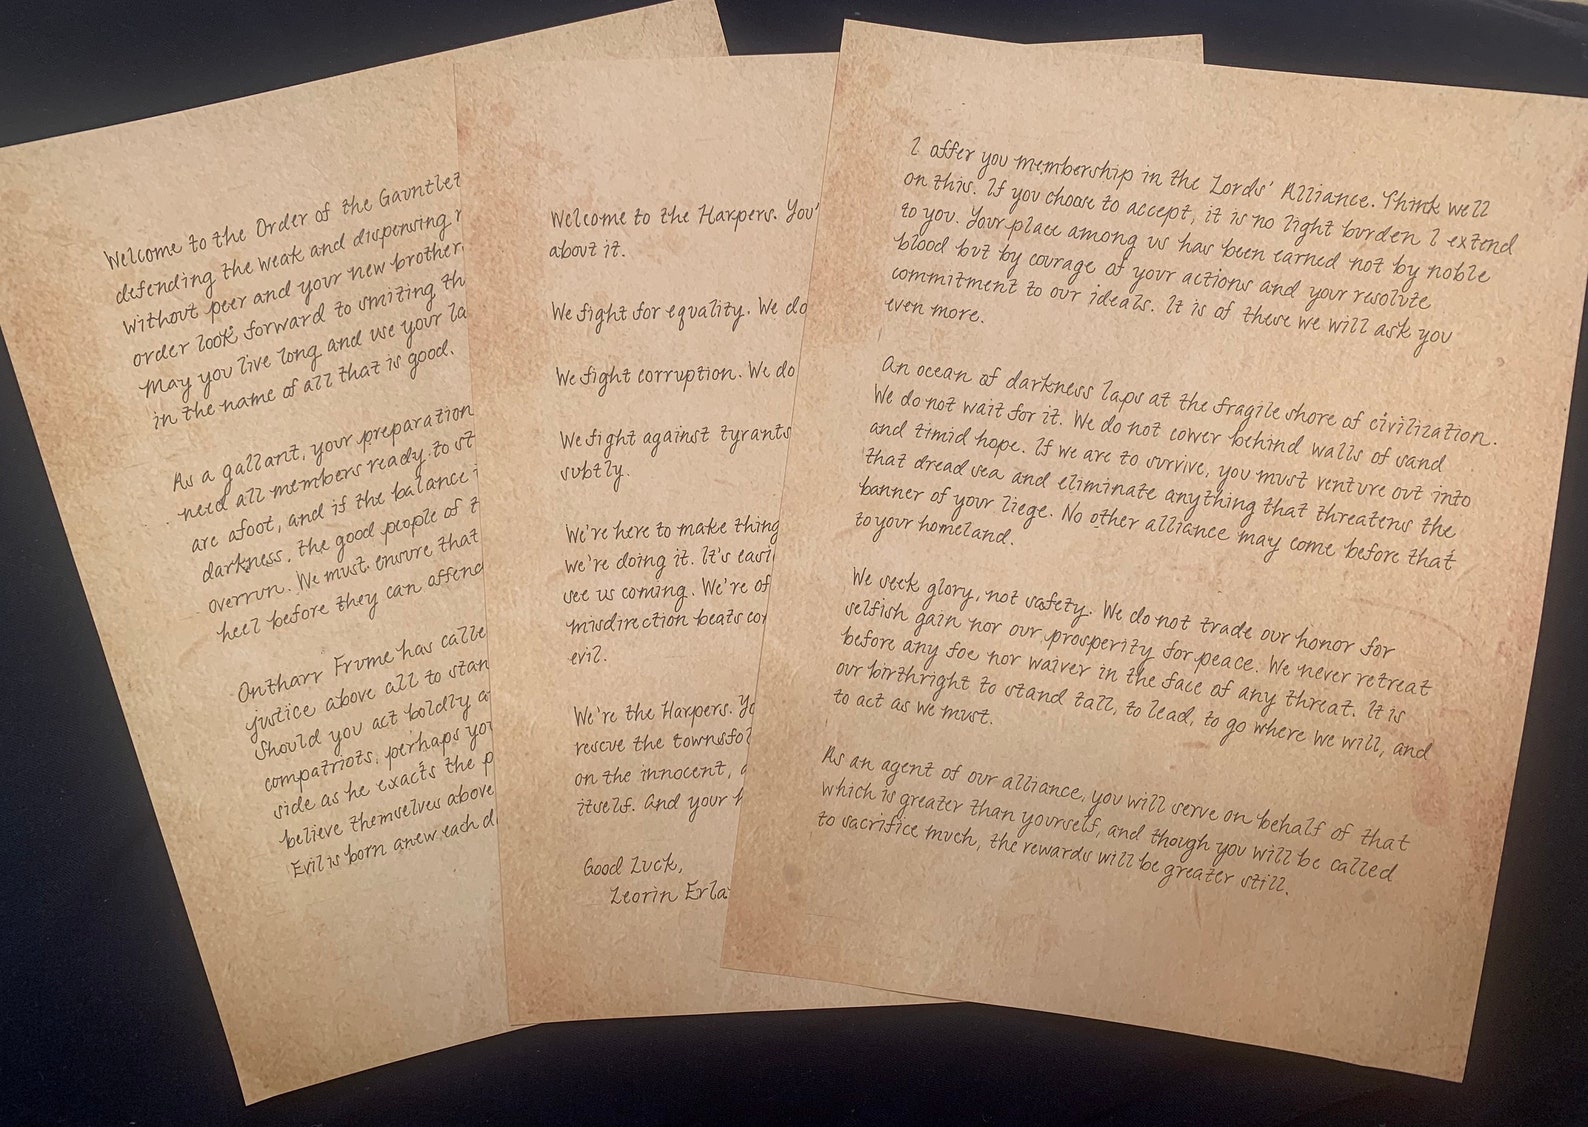 Welcome to the Order of the Gauntlet
defending the weak and dispensing
without peer and your new brother
order look forward to smiting th
May you live long and use your la
in the name of all that is good.
As a gallant, your preparation
need all members ready to st
are afoot, and if the balance
darkness, the good people of t
overrun. We must ensure that
heel before they can offend
Ontharr Frume has calle
justice above all to stan
Should you act boldly a
compatriots, perhaps you
side as he exacts the p
believe themselves above
Evil is born anew each d
Welcome to the Harpers. You'
about it.
We fight for equality. We do
We fight corruption. We do
We fight against tyrants
subtly.
We're here to make thing
we're doing it. It's easi
see us coming. We're of
misdirection beats co
evil.
We're the Harpers. Yo
rescue the townsfol
on the innocent, a
itself. And your h
Good Luck,
Leorin Erla
I offer you membership in the Lords' Alliance. Think well
on this. If you choose to accept, it is no light burden I extend
to you. Your place among us has been earned not by noble
blood but by courage of your actions and your resolute
commitment to our ideals. It is of these we will ask you
even more.
An ocean of darkness laps at the fragile shore of civilization.
We do not wait for it. We do not cower behind walls of sand
and timid hope. If we are to survive, you must venture out into
that dread sea and eliminate anything that threatens the
banner of your liege. No other alliance may come before that
to your homeland.
We seek glory, not safety. We do not trade our honor for
selfish gain nor our prosperity for peace. We never retreat
before any foe nor waiver in the face of any threat. It is
our birthright to stand tall, to lead, to go where we will, and
to act as we must.
As an agent of our alliance, you will serve on behalf of that
which is greater than yourself, and though you will be called
to sacrifice much, the rewards will be greater still.